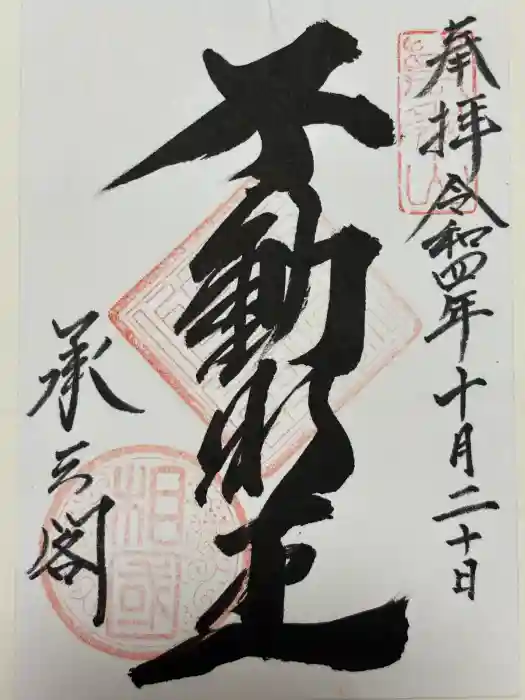 奉拝 令和四年十月二十日
不動明王
承天閣
相国